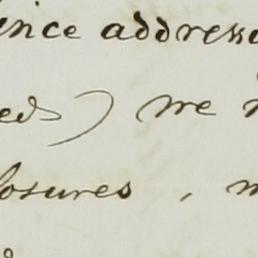 ince address
ed) we
losures , m